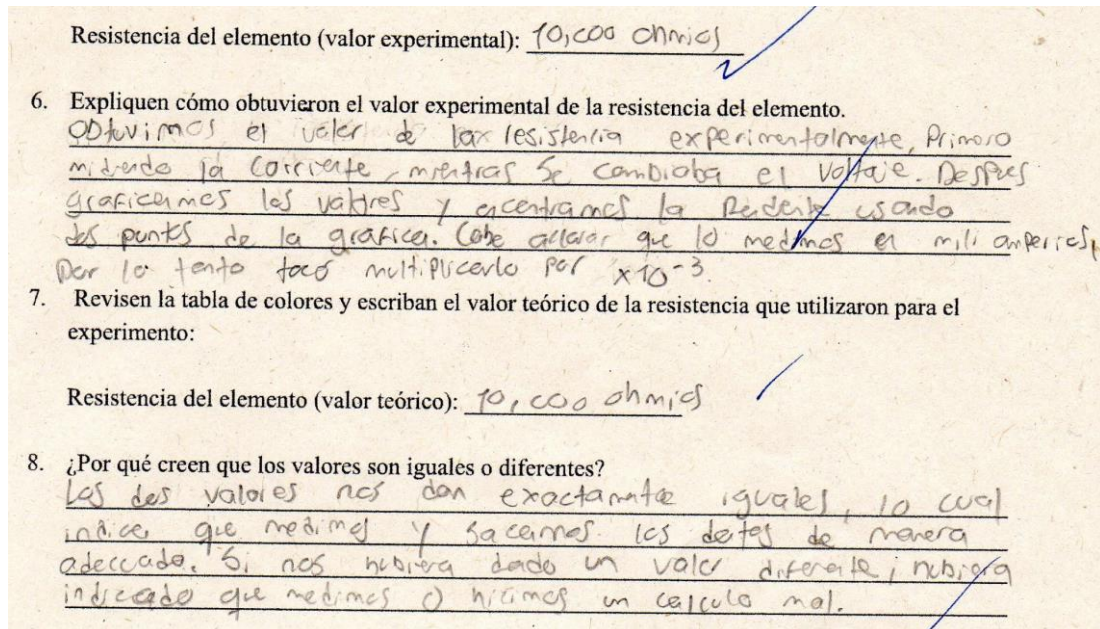 Resistencia del elemento (valor experimental): 10,000 ohmios
6. Expliquen cómo obtuvieron el valor experimental de la resistencia del elemento.
Obtuvimos el valor de la resistencia experimentalmente, Primero
midiendo la corriente, mientras se cambiaba el voltaje. Despues
graficamos los valores y encontramos la Pendiente usando
dos puntos de la gráfica. Cabe aclarar que lo medimos en mili amperios,
Por lo tanto tocó multiplicarlo por x10⁻³.
7. Revisen la tabla de colores y escriban el valor teórico de la resistencia que utilizaron para el
experimento:
Resistencia del elemento (valor teórico): 10,000 ohmios
8. ¿Por qué creen que los valores son iguales o diferentes?
Los dos valores nos dan exactamente iguales, lo cual
indica que medimos y sacamos los datos de manera
adecuada. Si nos hubiera dado un valor diferente, hubiera
indicado que medimos o hicimos un calculo mal.